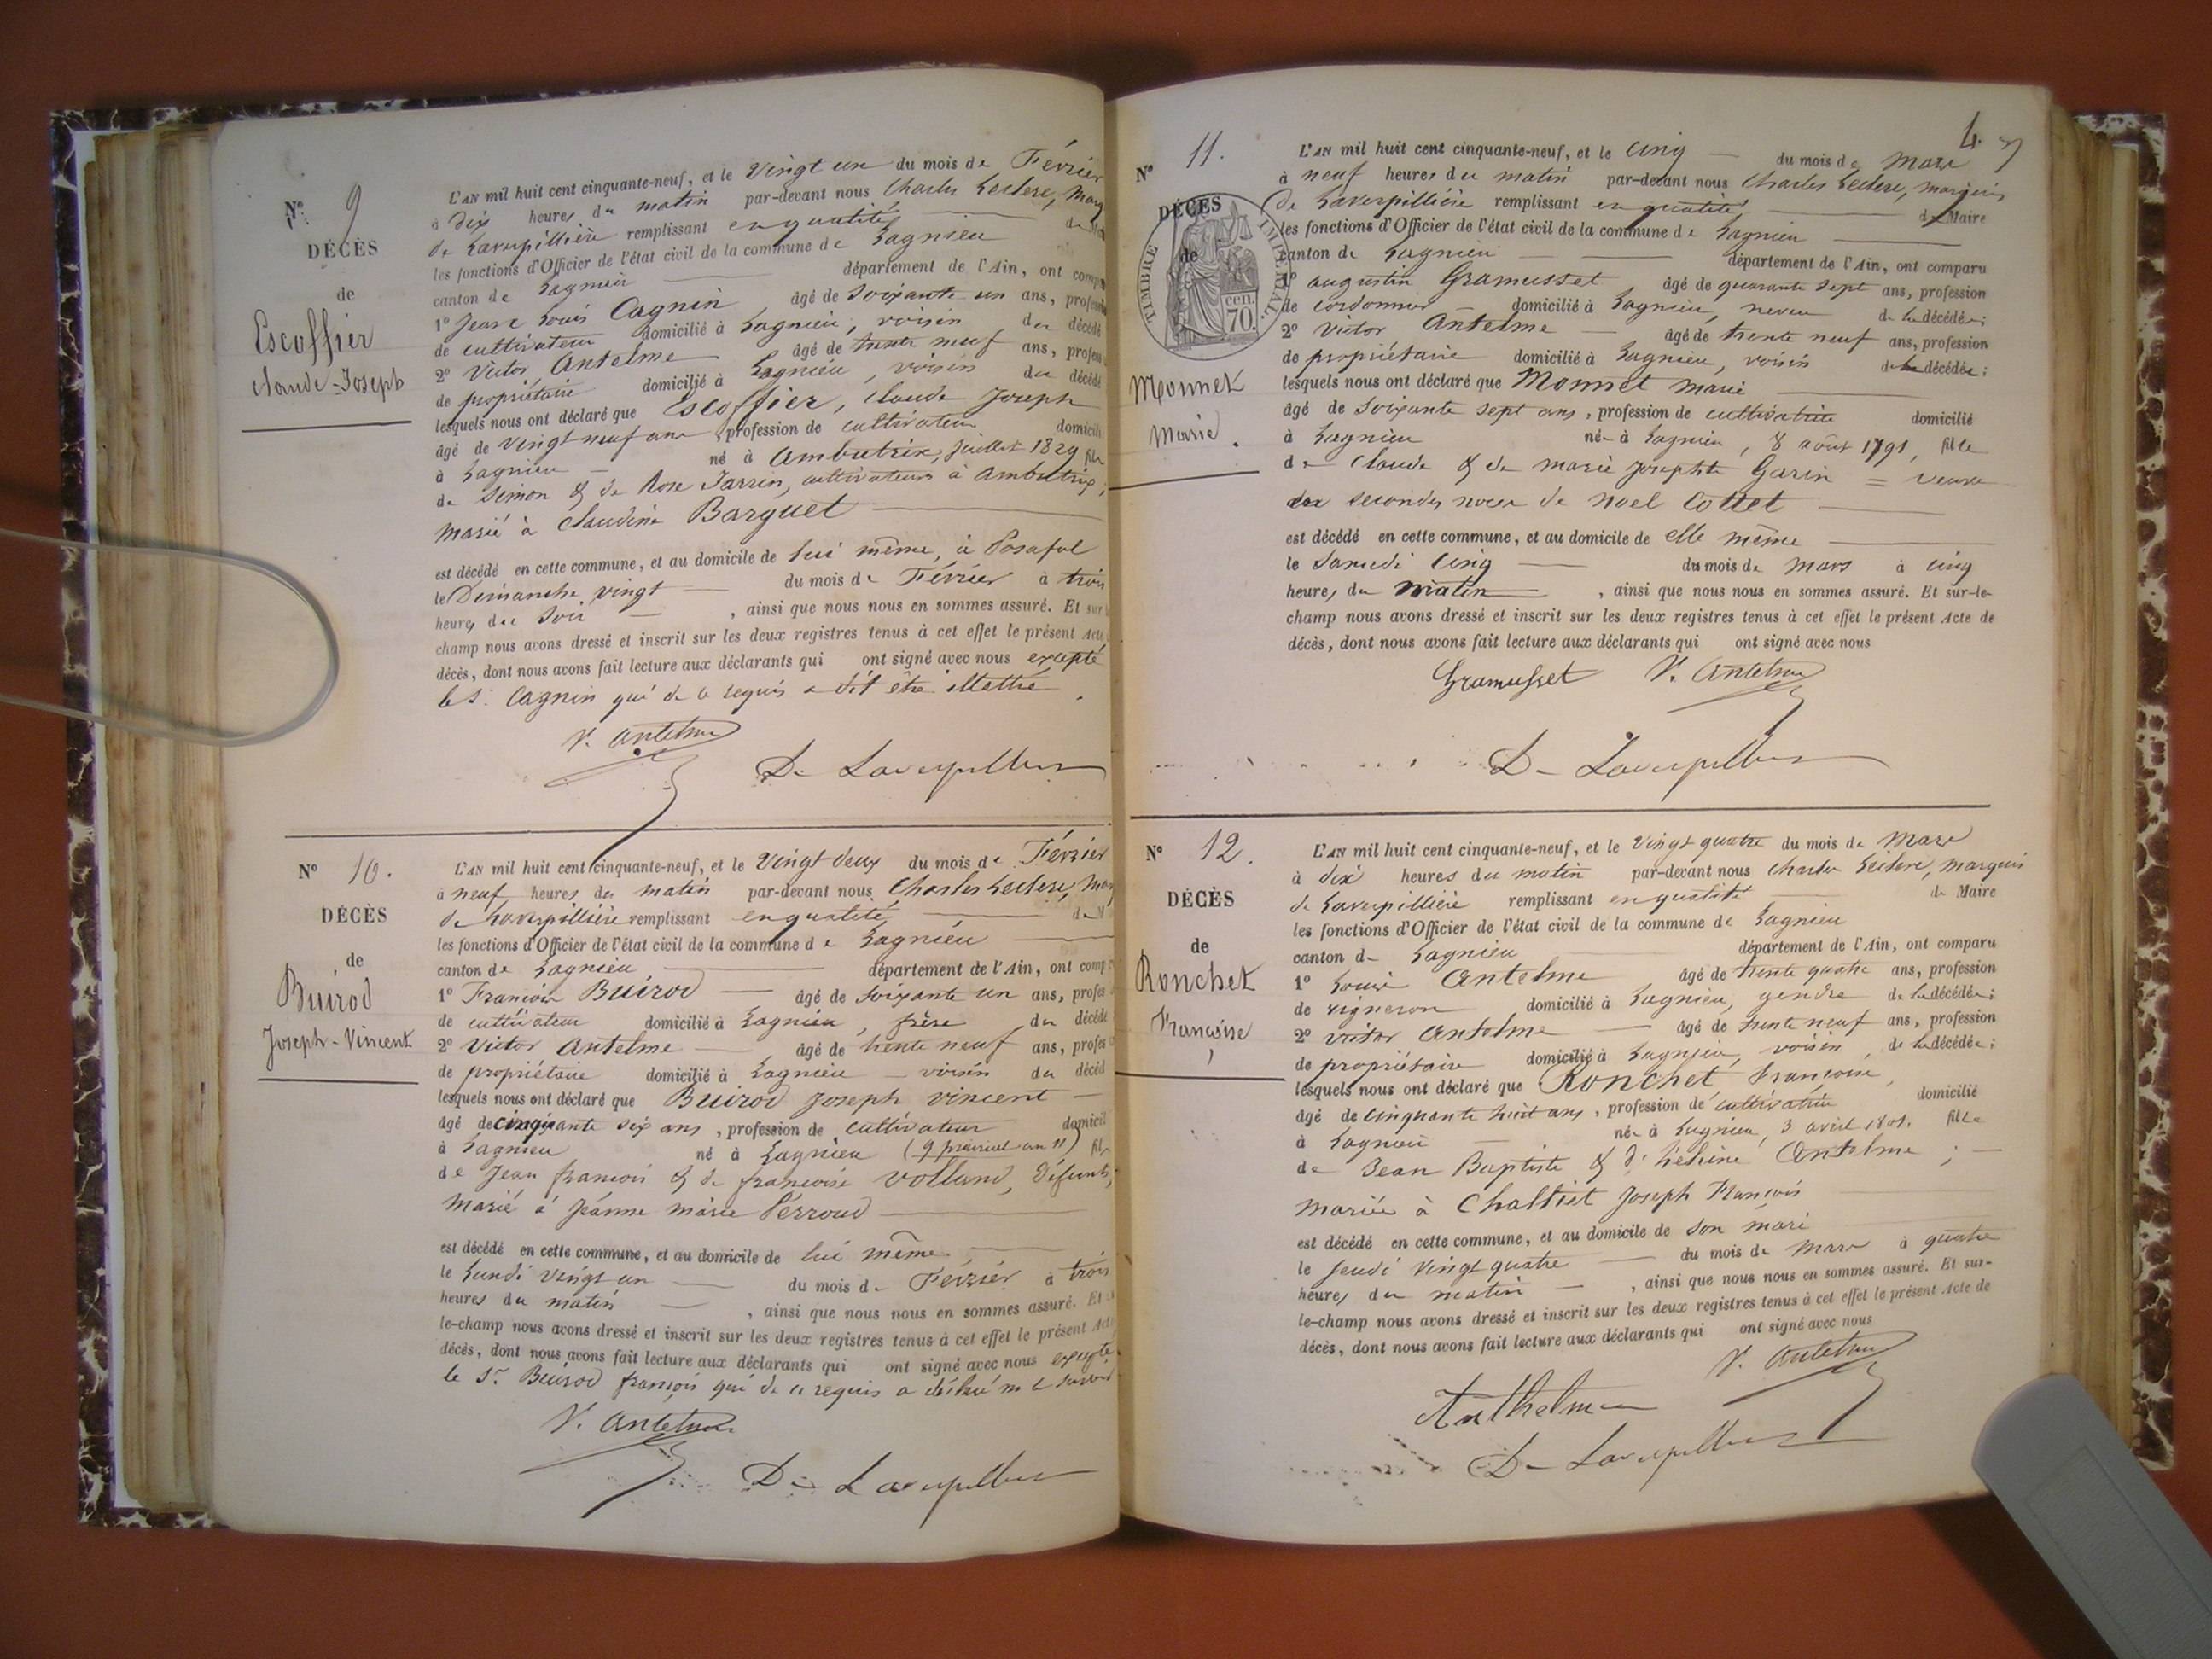 N° 9
DÉCÈS
de
Escoffier
Claude-Joseph
L'AN mil huit cent cinquante-neuf, et le Vingt un du mois de Février
à dix heures du matin par-devant nous Charles Leclerc, Marq
de Laverpillière remplissant en qualité de
les fonctions d'Officier de l'état civil de la commune de Lagnieu
canton de Lagnieu département de l'Ain, ont comp
1° Jean Louis Cagnin âgé de Soixante un ans, profes
de cultivateur domicilié à Lagnieu, voisin du décédé
2° Victor Antelme âgé de trente neuf ans, profes
de propriétaire domicilié à Lagnieu, voisin du décédé
lesquels nous ont déclaré que Escoffier, Claude Joseph
âgé de vingt neuf ans, profession de cultivateur domicili
à Lagnieu né à Ambutrix, Juillet 1829 fils
de Simon & de Rose Jarrin, cultivateurs à Ambutrix,
marié à Claudine Barguet
est décédé en cette commune, et au domicile de lui même, à Posafol
le Dimanche vingt du mois de Février à trois
heures du Soir, ainsi que nous nous en sommes assuré. Et sur
champ nous avons dressé et inscrit sur les deux registres tenus à cet effet le présent Acte
décès, dont nous avons fait lecture aux déclarants qui ont signé avec nous excepté
le S. Cagnin qui de ce requis a dit être illettré.
V. Antelme
De Laverpillière
N° 10.
DÉCÈS
de
Buirod
Joseph-Vincent
L'AN mil huit cent cinquante-neuf, et le Vingt deux du mois de Février
à neuf heures du matin par-devant nous Charles Leclerc, Mar
de Laverpillière remplissant en qualité de M
les fonctions d'Officier de l'état civil de la commune de Lagnieu
canton de Lagnieu département de l'Ain, ont comp
1° François Buirod âgé de soixante un ans, profes
de cultivateur domicilié à Lagnieu, frère du décédé
2° Victor Antelme âgé de trente neuf ans, profes
de propriétaire domicilié à Lagnieu - voisin du décéd
lesquels nous ont déclaré que Buirod Joseph Vincent
âgé de cinquante six ans, profession de cultivateur domicil
à Lagnieu né à Lagnieu (9 prairial an 11) fils
de Jean françois & de françoise Volland, défunts,
marié à Jeanne marie Perroud
est décédé en cette commune, et au domicile de lui même
le Lundi vingt un du mois de Février à trois
heures du matin, ainsi que nous nous en sommes assuré. Et
le-champ nous avons dressé et inscrit sur les deux registres tenus à cet effet le présent Act
décès, dont nous avons fait lecture aux déclarants qui ont signé avec nous excepté
le Sr Buirod françois qui de ce requis a déclaré ne le savoir
V. Antelme
De Laverpillière
4.
N° 11.
DÉCÈS
de
TIMBRE IMPÉRIAL
cen.
70.
Monnet
Marie.
L'AN mil huit cent cinquante-neuf, et le Cinq du mois de Mars
à neuf heures du matin par-devant nous Charles Leclerc, marquis
de Laverpillière remplissant en qualité de Maire
les fonctions d'Officier de l'état civil de la commune de Lagnieu
canton de Lagnieu département de l'Ain, ont comparu
1° augustin Gramusset âgé de quarante sept ans, profession
de cordonnier domicilié à Lagnieu, neveu de la décédée;
2° Victor Antelme âgé de trente neuf ans, profession
de propriétaire domicilié à Lagnieu, voisin de la décédée;
lesquels nous ont déclaré que Monnet marie
âgé de soixante sept ans, profession de cultivatrice domicilié
à Lagnieu née à Lagnieu, 8 août 1791, fille
de Claude & de marie Josephte Garin = veuve
en secondes noces de Noel Cottet
est décédé en cette commune, et au domicile de elle même
le Samedi Cinq du mois de Mars à cinq
heures du matin, ainsi que nous nous en sommes assuré. Et sur-le-
champ nous avons dressé et inscrit sur les deux registres tenus à cet effet le présent Acte de
décès, dont nous avons fait lecture aux déclarants qui ont signé avec nous
Gramusset V. Antelme
De Laverpillière
N° 12.
DÉCÈS
de
Ronchet
Françoise
L'AN mil huit cent cinquante-neuf, et le Vingt quatre du mois de Mars
à dix heures du matin par-devant nous Charles Leclerc, marquis
de Laverpillière remplissant en qualité de Maire
les fonctions d'Officier de l'état civil de la commune de Lagnieu
canton de Lagnieu département de l'Ain, ont comparu
1° Louis Antelme âgé de trente quatre ans, profession
de vigneron domicilié à Lagnieu, gendre de la décédée;
2° Victor Antelme âgé de trente neuf ans, profession
de propriétaire domicilié à Lagnieu, voisin, de la décédée;
lesquels nous ont déclaré que Ronchet françoise,
âgé de cinquante huit ans, profession de cultivatrice domicilié
à Lagnieu née à Lagnieu, 3 avril 1801. fille
de Jean Baptiste & d' Antelme;
mariée à Chaltiet Joseph François
est décédé en cette commune, et au domicile de son mari
le Jeudi vingt quatre du mois de Mars à quatre
heures du matin, ainsi que nous nous en sommes assuré. Et sur-
le-champ nous avons dressé et inscrit sur les deux registres tenus à cet effet le présent Acte de
décès, dont nous avons fait lecture aux déclarants qui ont signé avec nous
V. Antelme
Anthelme
De Laverpillière